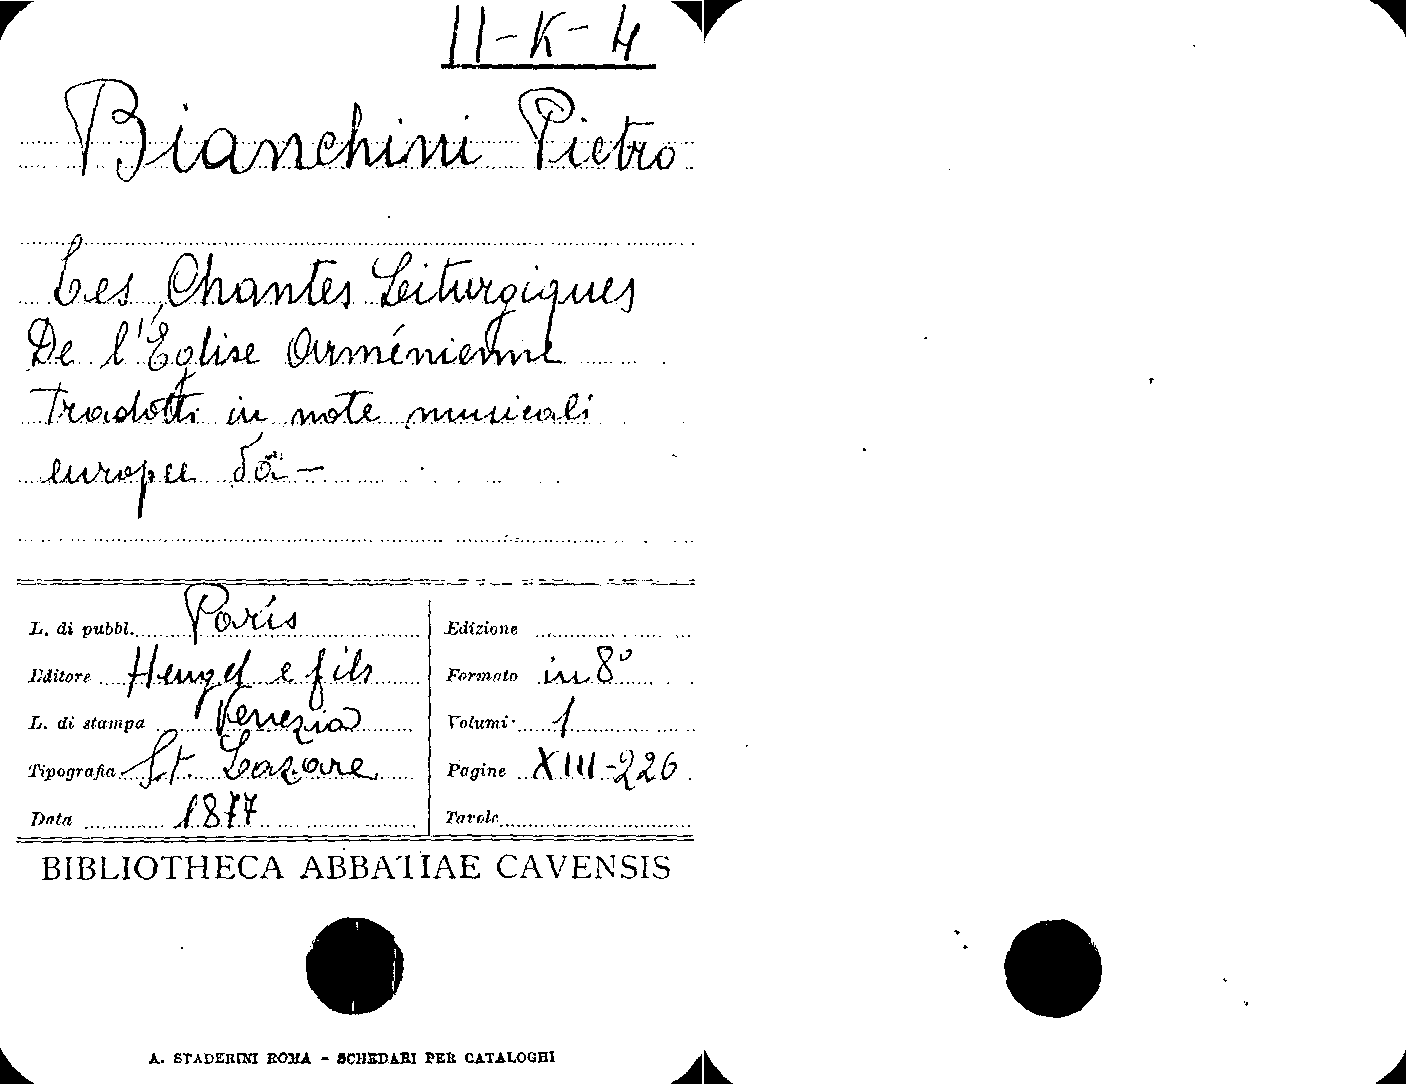 II-K-4
Bianchini Pietro
Les Chantes Liturgiques
De l'Église Arménienne
Tradotti in note musicali
europee da -
L. di pubbl. Paris
Editore Hengel e fils
L. di stampa Venezia
Tipografia St. Lazare
Data 1877
Edizione
Formato in 8°
Volumi 1
Pagine XIII-226
Tavole
BIBLIOTHECA ABBATIAE CAVENSIS
A. STADERINI ROMA - SCHEDARI PER CATALOGHI